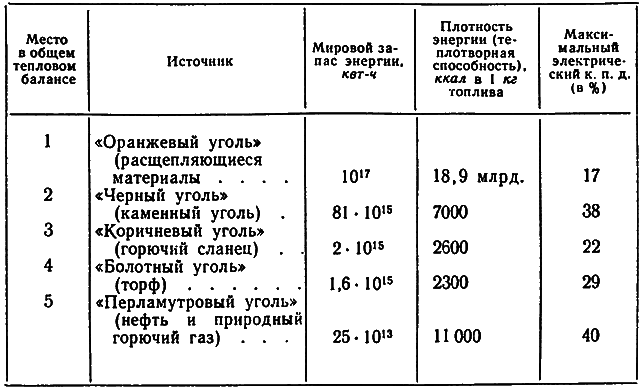 Место в общем тепловом балансе | Источник | Мировой запас энергии, квт-ч | Плотность энергии (теплотворная способность), ккал в 1 кг топлива | Максимальный электрический к. п. д. (в %)
1 «Оранжевый уголь»
(расщепляющиеся
материалы . . . . 10¹⁷ 18,9 млрд. 17
2 «Черный уголь»
(каменный уголь) . 81 · 10¹⁵ 7000 38
3 «Коричневый уголь»
(горючий сланец) . . 2 · 10¹⁵ 2600 22
4 «Болотный уголь»
(торф) . . . . . . 1,6 · 10¹⁵ 2300 29
5 «Перламутровый уголь»
(нефть и природный
горючий газ) . . . 25 · 10¹³ 11 000 40